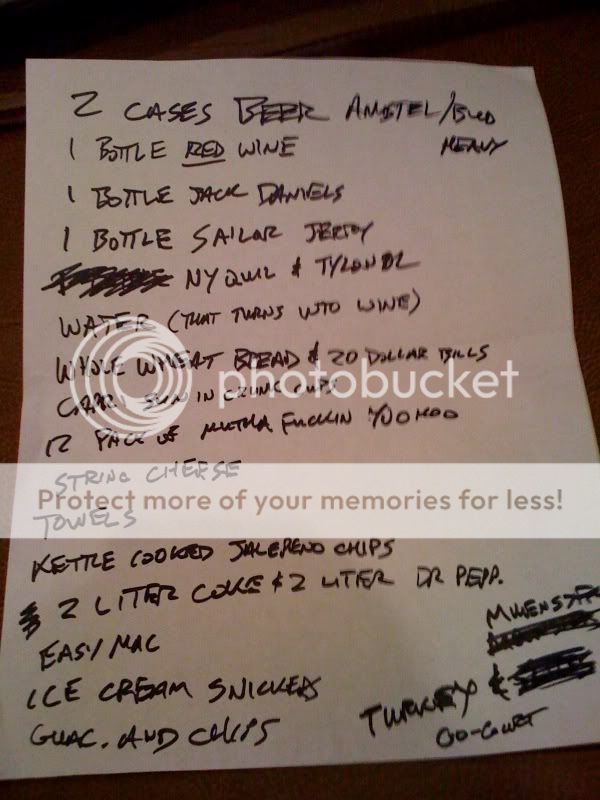 2 CASES BEER AMSTEL/BUD
HEAVY
1 BOTTLE RED WINE
1 BOTTLE JACK DANIELS
1 BOTTLE SAILOR JERRY
NYQUIL & TYLONOL
WATER (THAT TURNS INTO WINE)
WHOLE WHEAT BREAD & 20 DOLLAR BILLS
CAPRI SUN IN CRUNK CUPS
12 PACK OF MUTHA FUCKIN YOOHOO
STRING CHEESE
TOWELS
KETTLE COOKED JALEPENO CHIPS
2 LITER COKE & 2 LITER DR PEPP.
EASY MAC
ICE CREAM SNICKERS
GUAC. AND CHIPS
TURKEY &
GO-GURT
photobucket
Protect more of your memories for less!